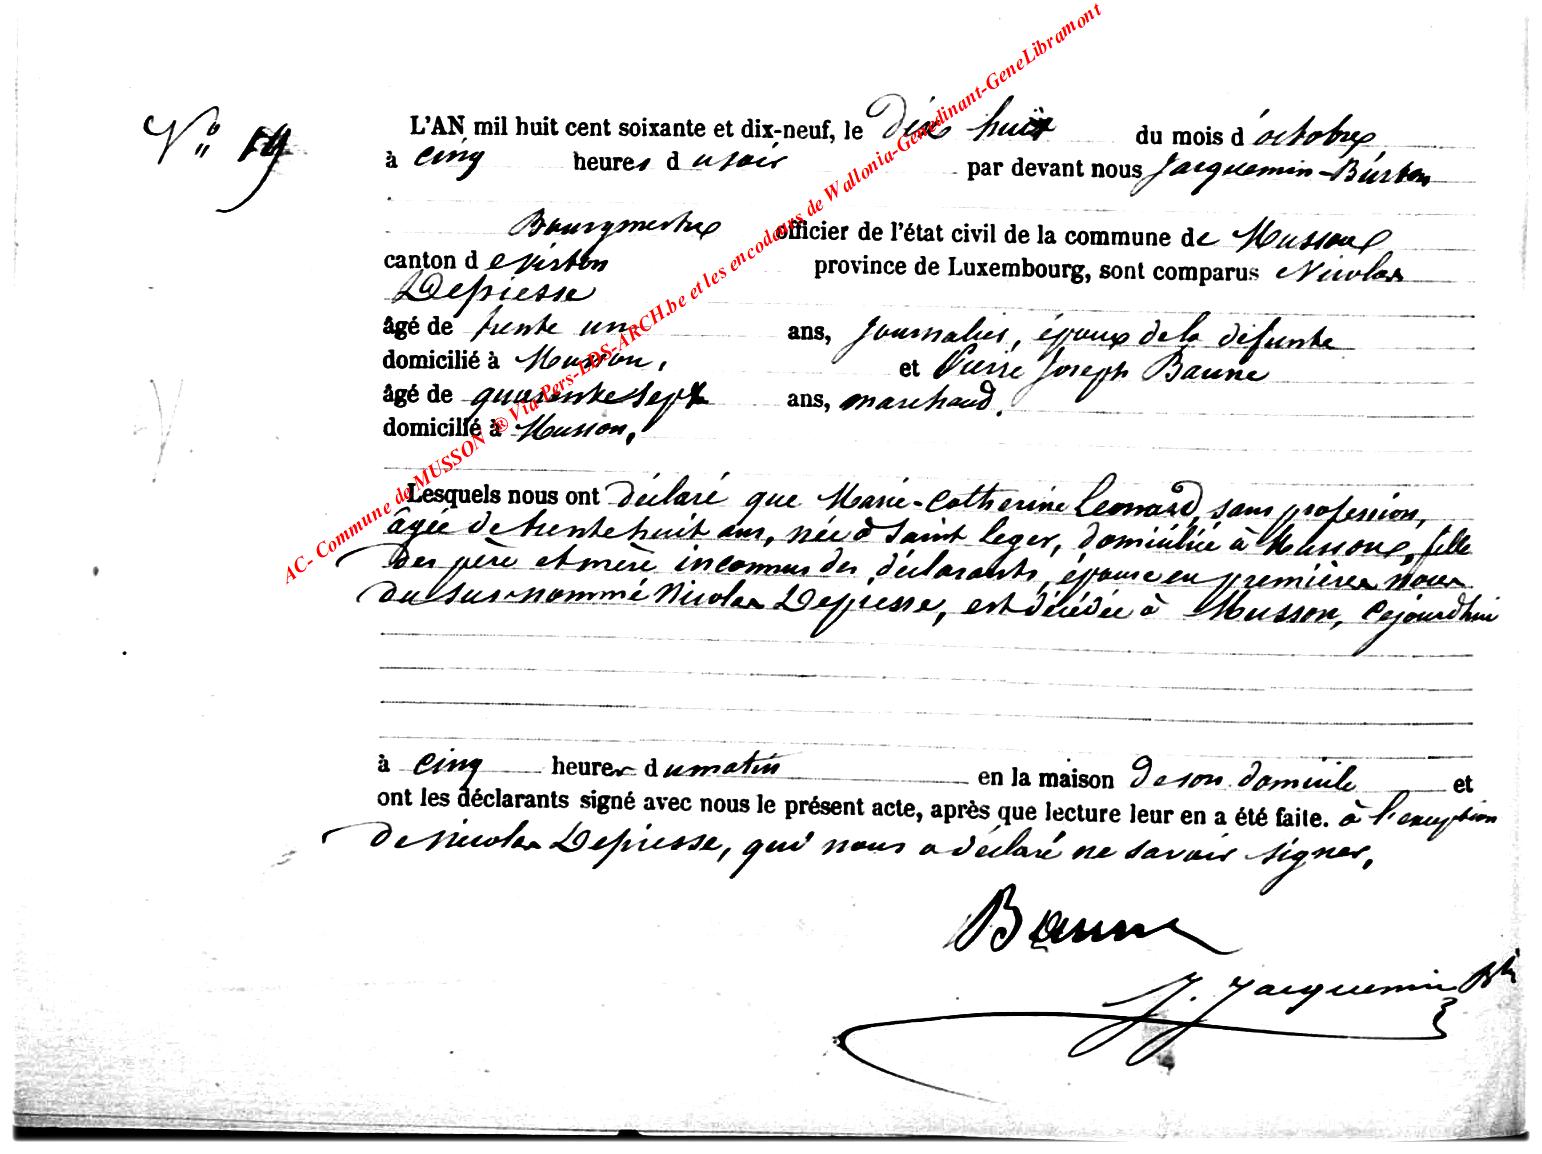 N° 19
L'AN mil huit cent soixante et dix-neuf, le dix huit du mois d'octobre
à cinq heures du soir par devant nous Jacquemin-Burton
Bourgmestre officier de l'état civil de la commune de Musson
canton de Virton province de Luxembourg, sont comparus Nicolas
Depiesse
âgé de trente un ans, journalier, époux de la défunte
domicilié à Musson, et Pierre Joseph Baune
âgé de quarante sept ans, marchand.
domicilié à Musson,
Lesquels nous ont déclaré que Marie-Catherine Leonard, sans profession,
âgée de trente huit ans, née à Saint Leger, domiciliée à Musson, fille
des père et mère inconnus des déclarants, épouse en premières noces
du sus-nommé Nicolas Depiesse, est décédée à Musson, cejourd'hui
à cinq heures du matin en la maison de son domicile et
ont les déclarants signé avec nous le présent acte, après que lecture leur en a été faite. à l'exception
de Nicolas Depiesse, qui nous a déclaré ne savoir signer,
Baune
J. Jacquemin Btn
AC- Commune de MUSSON ® Via Pers-LDS-ARCH.be et les encodeurs de Wallonia-Genedinant-GeneLibramont